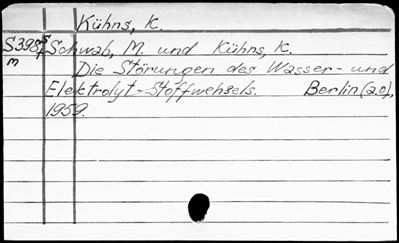 Kühns, K.
S398s Schwab, M. und Kühns, K.
m Die Störungen des Wasser- und
Elektrolyt-Stoffwehsels. Berlin (2.0),
1959.